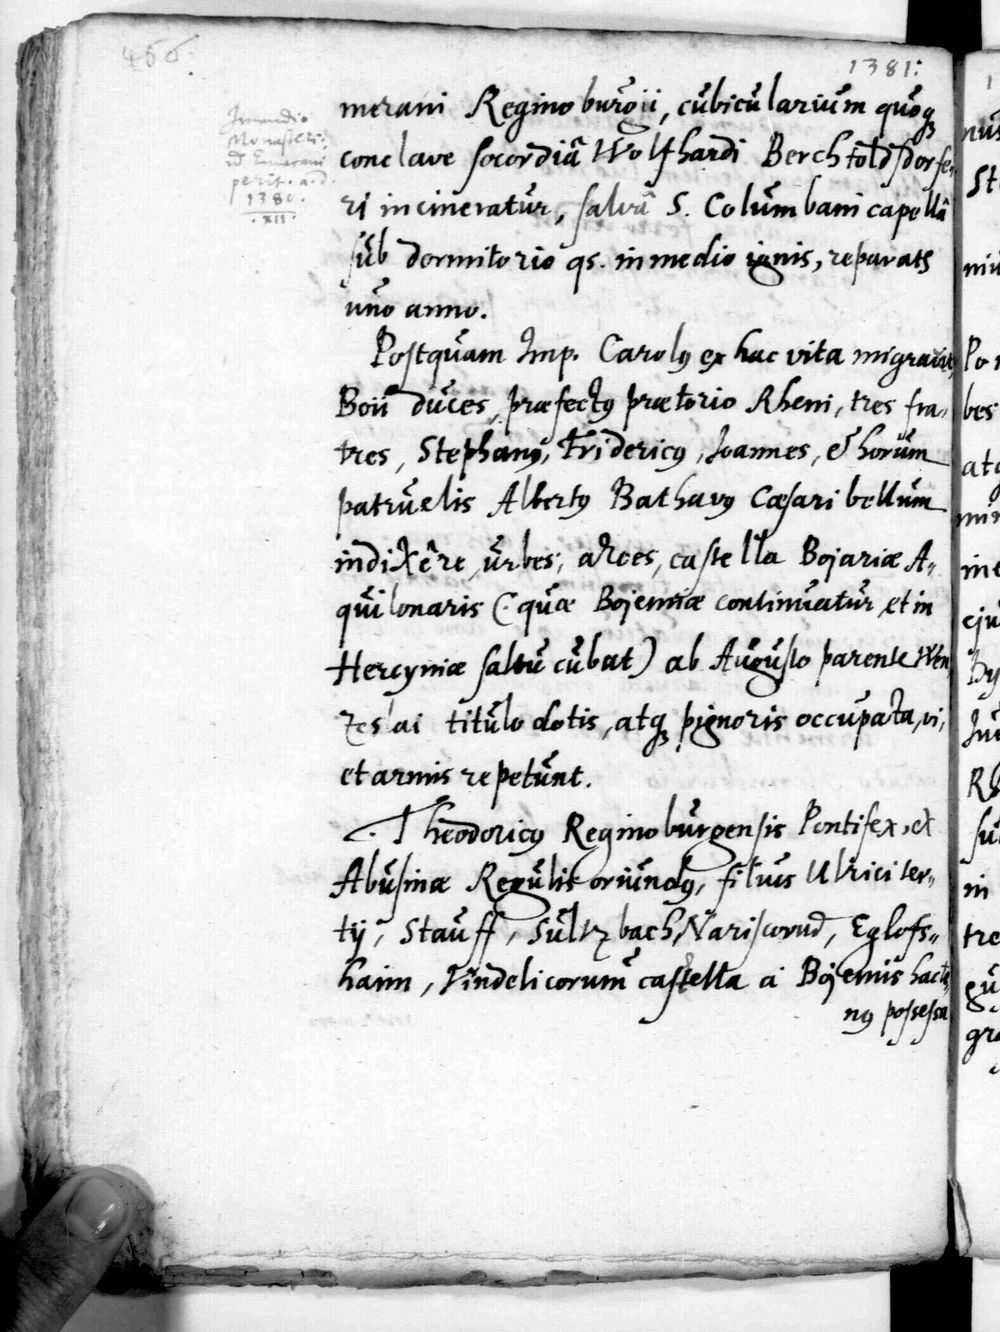 456.
1381:
Incendio
Monasteriū
S. Emerani
perit. a. d.
1380.
.XII.
merani Reginoburgii, cubicularium quoqꝫ
conclave socordiâ Wolfhardi Berchtoldsdorfe,
ri incineratur, salvâ S. Columbani capellâ
sub dormitorio qs. in medio ignis, reparats
uno anno.
Postquam Imp. Carolꝰ ex hac vita migravit,
Boii duces, præfectꝰ prætorio Rheni, tres fra-
tres, Stephanꝰ, Fridericꝰ, Joannes, & horum
patruelis Albertꝰ Bathavꝰ Cæsari bellum
indixêre, urbes, arces, castella Bojariæ A-
quilonaris (: quæ Bojemiæ continuatur, et in
Hercyniæ saltu cubat) ab Augusto parente Wen
zeslai titulo dotis, atqꝫ pignoris occupata, vi,
et armis repetunt.
Theodoricꝰ Reginoburgensis Pontifex, ex
Abusinæ Regulis oriundꝰ, filius Ulrici ter-
tij, Stauff, Sultzbach, Nariscorum, Eglofs-
haim, Vindelicorum castella a Bojemis hacte,
nꝰ possessa